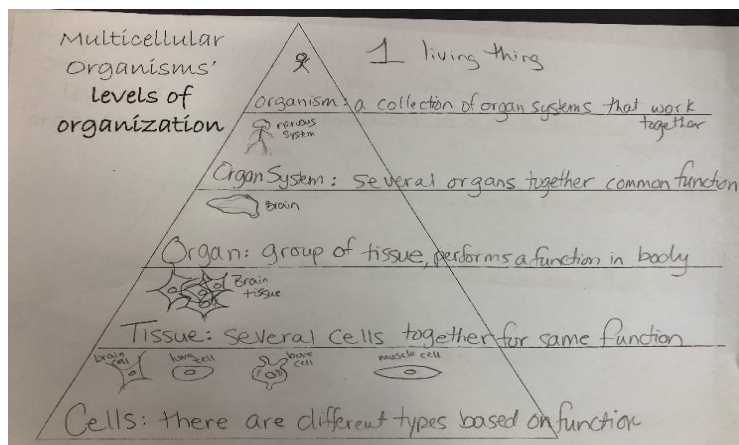 Multicellular
Organisms'
levels of
organization
1 living thing
Organism: a collection of organ systems that work
together
nervous
system
Organ System: several organs together common function
Brain
Organ: group of tissue, performs a function in body
Brain
tissue
Tissue: several cells together for same function
brain
cell
lung
cell
bone
cell
muscle cell
Cells: there are different types based on function